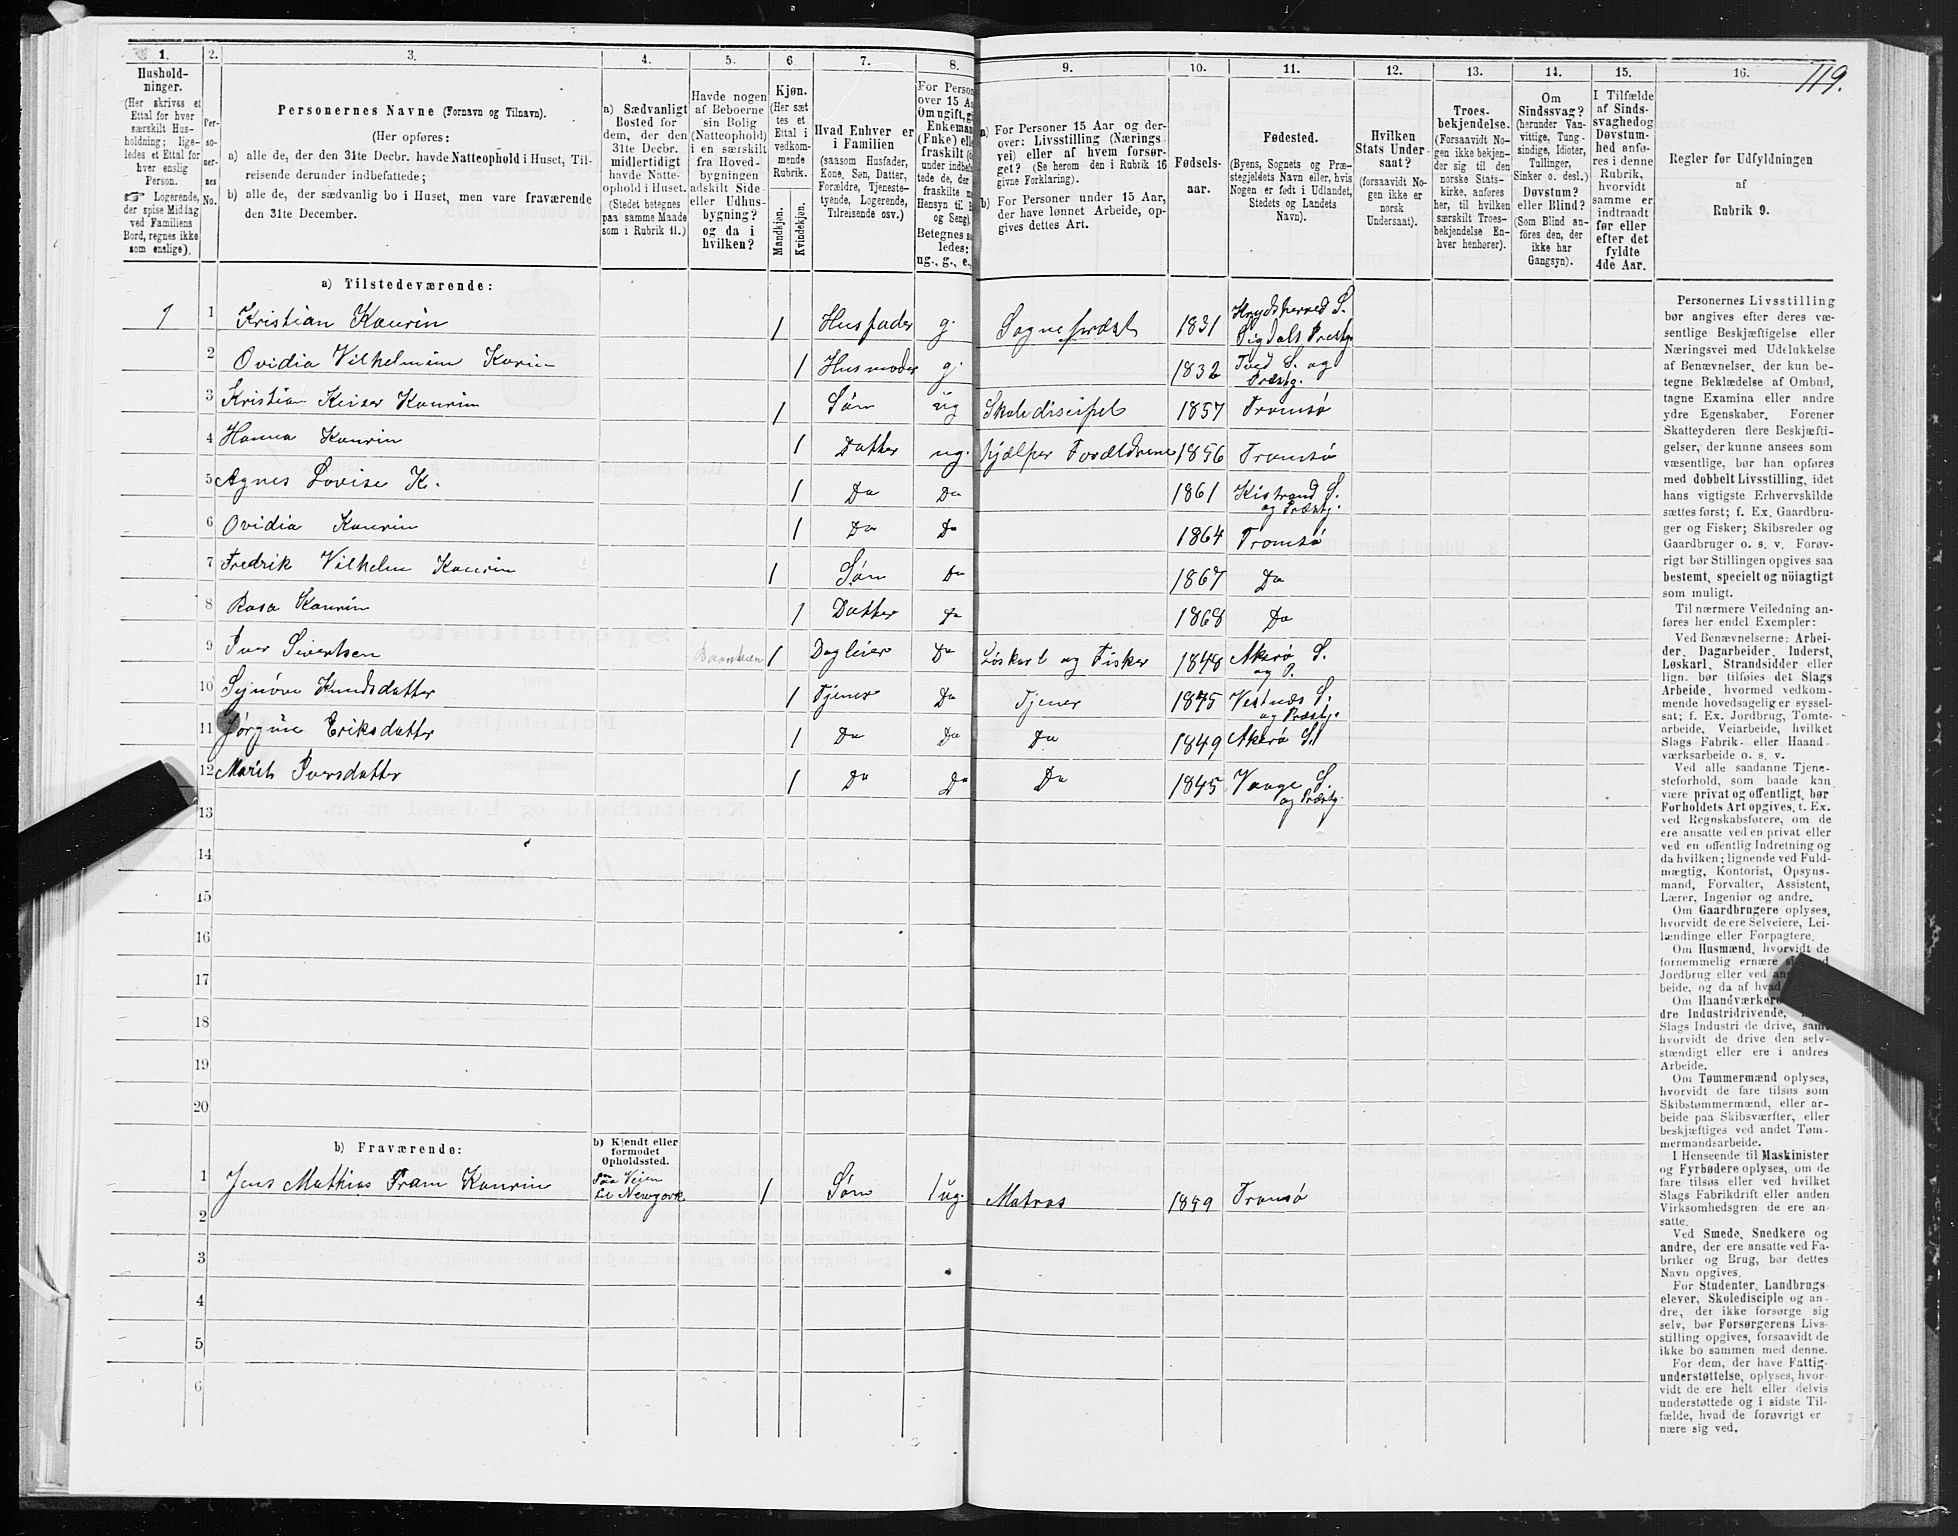 119.
1.
Hushold-
ninger.
(Her skrives et
Ettal for hver
særskilt Hus-
holdning; lige-
ledes et Ettal for
hver enslig
Person.
☞ Logerende,
der spise Middag
ved Familiens
Bord, regnes ikke
som enslige).
2.
Per-
so-
ner-
nes
No.
3.
Personernes Navne (Fornavn og Tilnavn).
(Her opføres:
a) alle de, der den 31te Decbr. havde Natteophold i Huset, Til-
reisende derunder indbefattede;
b) alle de, der sædvanlig bo i Huset, men vare fraværende
den 31te December.
4.
a) Sædvanligt
Bosted for
dem, der den
31te Decbr.
midlertidigt
havde Natte-
ophold i Huset.
(Stedet betegnes
paa samme Maade
som i Rubrik 11.)
5.
Havde nogen
af Beboerne
sin Bolig
(Natteophold)
i en særskilt
fra Hoved-
bygningen
adskilt Side-
eller Udhus-
bygning?
og da i
hvilken?
6.
Kjøn.
(Her sæt-
tes et
Ettal i
vedkom-
mende
Rubrik.
Mandkjøn.
Kvindekjøn.
7.
Hvad Enhver er
i Familien
(saasom Husfader,
Kone, Søn, Datter,
Forældre, Tjeneste-
tyende, Logerende,
Tilreisende osv.)
8.
For Person
over 15 Aa
Om ugift, g
Enkeman
(Enke) elle
fraskilt
under indbe
tede de, de
fraskilte
Hensyn til B
og Seng)
Betegnes s
ledes:
ug., g., e.,
9.
a) For Personer 15 Aar og der-
over: Livsstilling (Nærings-
vei) eller af hvem forsør-
get? (Se herom den i Rubrik 16
givne Forklaring).
b) For Personer under 15 Aar,
der have lønnet Arbeide, op-
gives dettes Art.
10.
Fødsels-
aar.
11.
Fødested.
(Byens, Sognets og Præ-
stegjeldets Navn eller, hvis
Nogen er født i Udlandet,
Stedets og Landets
Navn).
12.
Hvilken
Stats Under-
saat?
(forsaavidt No-
gen ikke er
norsk
Undersaat).
13.
Troes-
bekjendelse.
(Forsaavidt No-
gen ikke bekjen-
der sig til den
norske Stats-
kirke, anføres
her, til hvilken
særskilt Troes-
bekjendelse En-
hver henhører).
14.
Om
Sindssvag?
(herunder Van-
vittige, Tung-
sindige, Idioter,
Tullinger,
Sinker o. desl.)
Døvstum?
eller Blind?
(Som Blind an-
føres den, der
ikke har
Gangsyn).
15.
I Tilfælde
af Sinds-
svaghed og
Døvstum-
hed anfø-
res i denne
Rubrik,
hvorvidt
samme er
indtraadt
før eller
efter det
fyldte
4de Aar.
16.
Regler for Udfyldningen
af
Rubrik 9.
a) Tilstedeværende:
1 1 Kristian Kaurin 1 Husfader g. Sogneprest 1831 Sigdals Prestg.
2 Ovidia Vilhelmine Kaurin 1 Husmoder g. 1832 Tved S. og Præstg.
3 Kristian Keiser Kaurin 1 Søn ug Skolediscipel 1857 Tromsø
4 Hanna Kaurin 1 Datter ug. hjælper Forældrene 1856 Tromsø
5 Agnes Lovise K. 1 Do Do 1861 Kistrand S. og Præstg.
6 Ovidia Kaurin 1 Do Do 1864 Tromsø
7 Fredrik Vilhelm Kaurin 1 Søn Do 1867 Do
8 Rosa Kaurin 1 Datter Do 1868 Do
9 Iver Sivertsen 1 Dagleier Do Løskarl og Fisker 1848 Akerø S. og P.
10 Synøve Knudsdatter 1 Tjener Do Tjener 1875 Vestnes S. og Præstg.
11 Jørgine Eriksdatter 1 Do Do Do 1849 Akerø S.
12 Marit Iversdatter 1 Do Do Do 1845 Vaage S. og Præstg.
13
14
15
16
17
18
19
20
b) Fraværende:
b) Kjendt eller
formodet
Opholdssted.
1 Jens Mathias Fram Kaurin Paa Veien til Newyork 1 Søn ug. Matros 1859 Tromsø
2
3
4
5
6
Personernes Livsstilling
bør angives efter deres væ-
sentlige Beskjæftigelse eller
Næringsvei med Udelukkelse
af Benævnelser, der kun be-
tegne Beklædelse af Ombud,
tagne Examina eller andre
ydre Egenskaber. Forener
Skatteyderen flere Beskjæfti-
gelser, der kunne ansees som
væsentlige, bør han opføres
med dobbelt Livsstilling, idet
hans vigtigste Erhvervskilde
sættes først; f. Ex. Gaardbru-
ger og Fisker; Skibsreder og
Gaardbruger o. s. v. Forøv-
rigt bør Stillingen opgives saa
bestemt, specielt og nöiagtigt
som muligt.
Til nærmere Veiledning an-
føres her endel Exempler:
Ved Benævnelserne: Arbei-
der, Dagarbeider, Inderst,
Løskarl, Strandsidder eller
lign. bør tilføies det Slags
Arbeide, hvormed vedkom-
mende hovedsagelig er syssel-
sat; f. Ex. Jordbrug, Tomte-
arbeide, Veiarbeide, hvilket
Slags Fabrik- eller Haand-
værksarbeide o. s. v.
Ved alle saadanne Tjene-
steforhold, som baade kan
være privat og offentligt, bør
Forholdets Art opgives, t. Ex.
ved Regnskabsførere, om de
ere ansatte ved en privat eller
ved en offentlig Indretning og
da hvilken; lignende ved Fuld-
mægtig, Kontorist, Opsyns-
mand, Forvalter, Assistent,
Lærer, Ingeniør og andre.
Om Gaardbrugere oplyses,
hvorvidt de ere Selveiere, Lei-
lændinge eller Forpagtere.
Om Husmænd, hvorvidt de
fornemmelig ernære
Jordbrug eller ved
beide, og da af hvad
Om Haandværkere
dre Industridrivende,
Slags Industri de drive, samt
hvorvidt de drive den selv-
stændigt eller ere i andres
Arbeide.
Om Tømmermænd oplyses,
hvorvidt de fare tilsøs som
Skibstømmermænd, eller ar-
beide paa Skibsværfter, eller
beskjæftiges ved andet Tøm-
mermandsarbeide.
I Henseende til Maskinister
og Fyrbødere oplyses, om de
fare tilsøs eller ved hvilket
Slags Fabrikdrift eller anden
Virksomhedsgren de ere an-
satte.
Ved Smede, Snedkere og
andre, der ere ansatte ved Fa-
briker og Brug, bør dettes
Navn opgives.
For Studenter, Landbrugs-
elever, Skoledisciple og an-
dre, der ikke forsørge sig
selv, bør Forsørgerens Livs-
stilling opgives, forsaavidt de
ikke bo sammen med denne.
For dem, der have Fattig-
understøttelse, oplyses, hvor-
vidt de ere helt eller delvis
understøttede og i sidste Til-
fælde, hvad de forøvrigt er
nære sig ved.